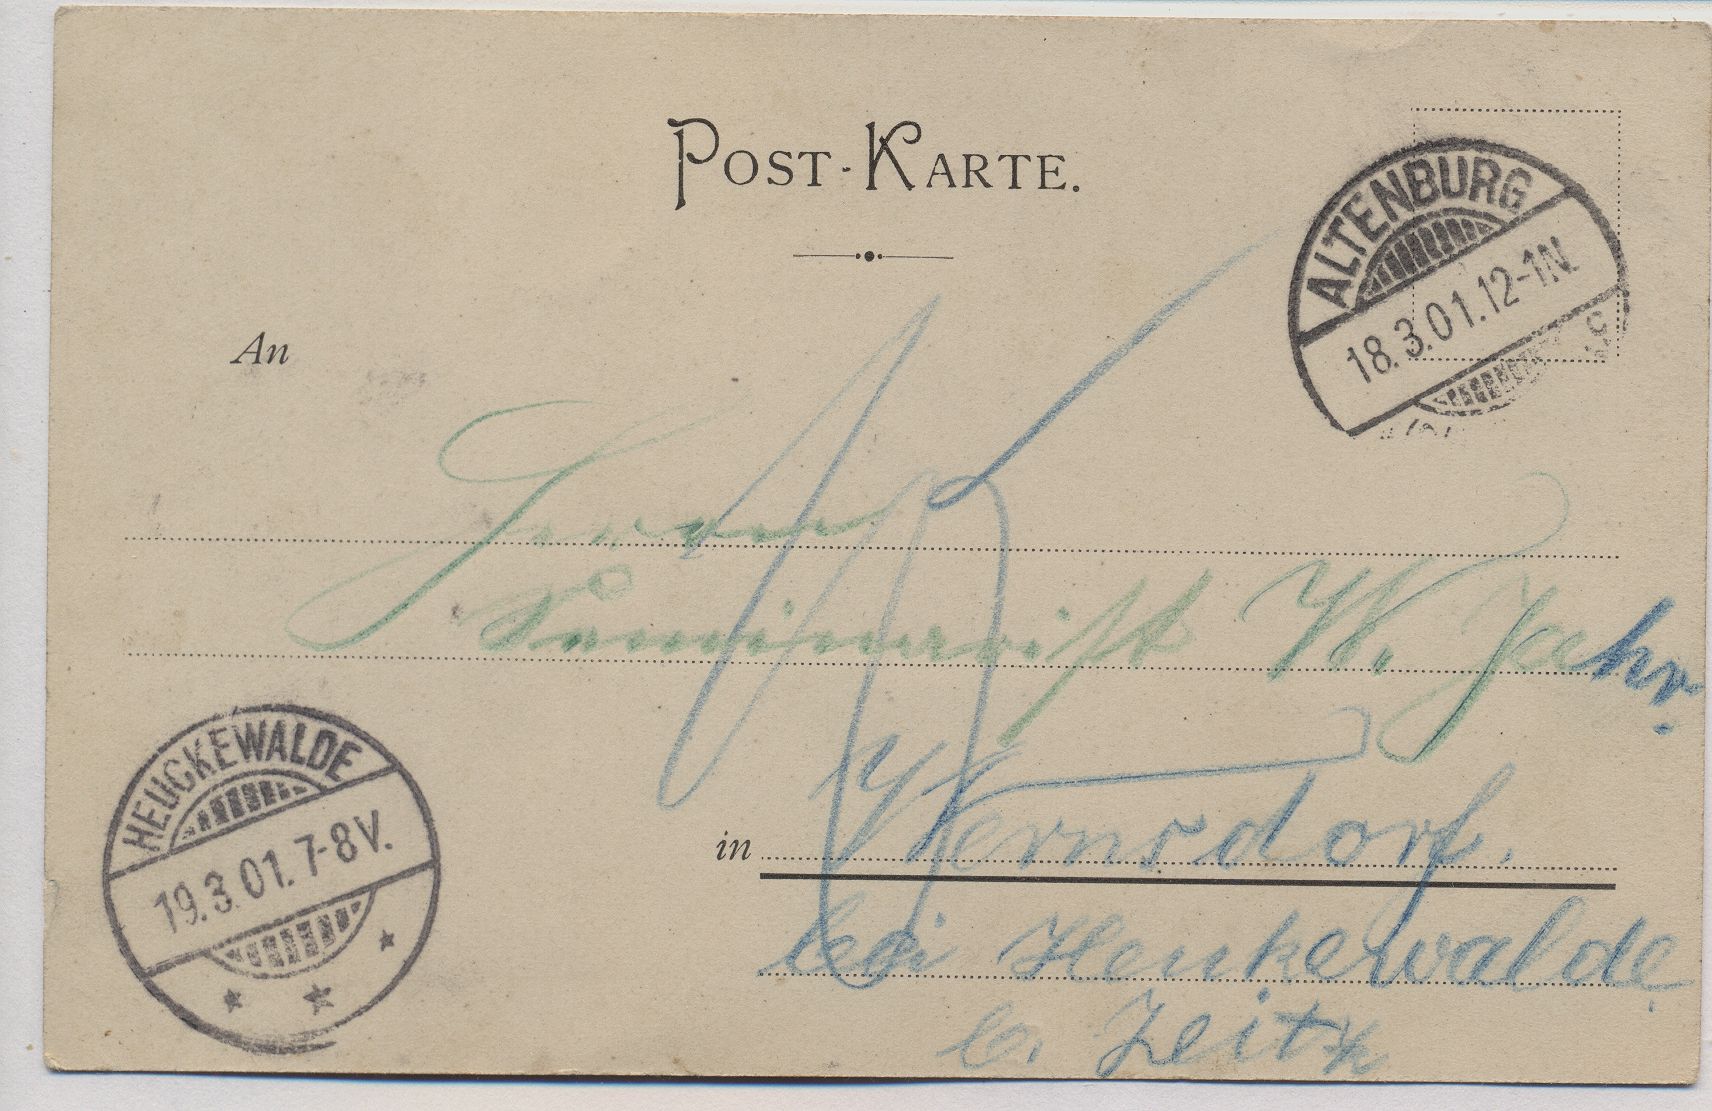 POST-KARTE.
ALTENBURG
18.3.01.12-1N.
An
Herrn
Seminarist W. Jahr.
HEUCKEWALDE
19.3.01.7-8V.
in Wernsdorf.
bei Heukewalde
b. Zeitz